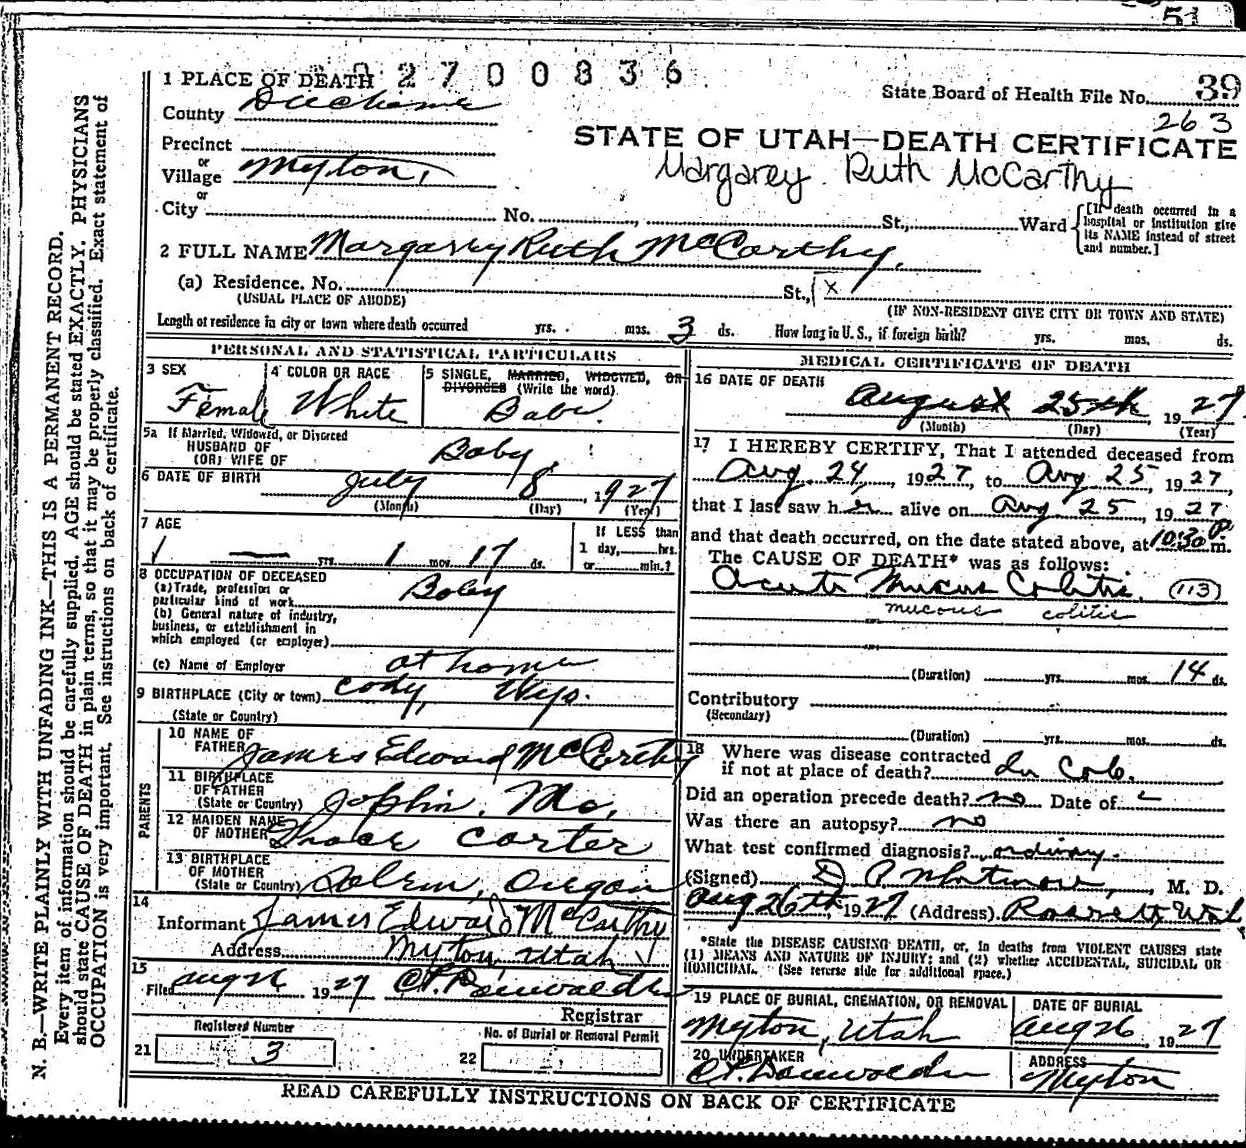 51
2700836
1 PLACE OF DEATH
State Board of Health File No. 39
County Duchesne
263
STATE OF UTAH—DEATH CERTIFICATE
Precinct
or
Village Myton,
Margarey Ruth McCarthy
or
City No. , St., Ward
[If death occurred in a hospital or institution give its NAME instead of street and number.]
2 FULL NAME Margarey Ruth McCarthy.
(a) Residence. No. St., x
(USUAL PLACE OF ABODE)
(IF NON-RESIDENT GIVE CITY OR TOWN AND STATE)
Length of residence in city or town where death occurred yrs. mos. 3 ds. How long in U. S., if foreign birth? yrs. mos. ds.
PERSONAL AND STATISTICAL PARTICULARS
3 SEX
Female
4 COLOR OR RACE
White
5 SINGLE, MARRIED, WIDOWED, OR
DIVORCED (Write the word)
Babe
5a If Married, Widowed, or Divorced
HUSBAND OF
(OR) WIFE OF
Baby
6 DATE OF BIRTH July 8, 1927
(Month) (Day) (Year)
7 AGE
— yrs. 1 mos. 17 ds.
If LESS than
1 day, hrs.
or min.?
8 OCCUPATION OF DECEASED
(a) Trade, profession or
particular kind of work Baby
(b) General nature of industry,
business, or establishment in
which employed (or employer)
(c) Name of Employer at home
9 BIRTHPLACE (City or town) Cody, Wyo.
(State or Country)
PARENTS
10 NAME OF
FATHER James Edward McCarthy
11 BIRTHPLACE
OF FATHER
(State or Country) Joplin, Mo,
12 MAIDEN NAME
OF MOTHER Grace Carter
13 BIRTHPLACE
OF MOTHER
(State or Country) Salem, Oregon
14
Informant James Edward McCarthy
Address Myton Utah
15
Filed Aug 26 1927
Registrar
Registered Number
21 3
No. of Burial or Removal Permit
22
MEDICAL CERTIFICATE OF DEATH
16 DATE OF DEATH
August 25th, 1927
(Month) (Day) (Year)
17 I HEREBY CERTIFY, That I attended deceased from
Aug 24, 1927, to Aug 25, 1927,
that I last saw her alive on Aug 25, 1927
and that death occurred, on the date stated above, at 10:30 P m.
The CAUSE OF DEATH* was as follows:
Acute Mucus Colitis. (113)
mucous colitis
(Duration) yrs. mos. 14 ds.
Contributory
(Secondary)
(Duration) yrs. mos. ds.
18 Where was disease contracted
if not at place of death? In Colo.
Did an operation precede death? no Date of
Was there an autopsy? no
What test confirmed diagnosis? ordinary.
(Signed) M. D.
Aug 26th, 1927 (Address) Roosevelt Utah
*State the DISEASE CAUSING DEATH, or, in deaths from VIOLENT CAUSES state
(1) MEANS AND NATURE OF INJURY; and (2) whether ACCIDENTAL, SUICIDAL OR
HOMICIDAL. (See reverse side for additional space.)
19 PLACE OF BURIAL, CREMATION, OR REMOVAL
Myton, Utah
DATE OF BURIAL
Aug 26, 1927
20 UNDERTAKER
ADDRESS
Myton
READ CAREFULLY INSTRUCTIONS ON BACK OF CERTIFICATE
N. B.—WRITE PLAINLY WITH UNFADING INK—THIS IS A PERMANENT RECORD.
Every item of information should be carefully supplied. AGE should be stated EXACTLY. PHYSICIANS
should state CAUSE OF DEATH in plain terms, so that it may be properly classified. Exact statement of
OCCUPATION is very important. See instructions on back of certificate.